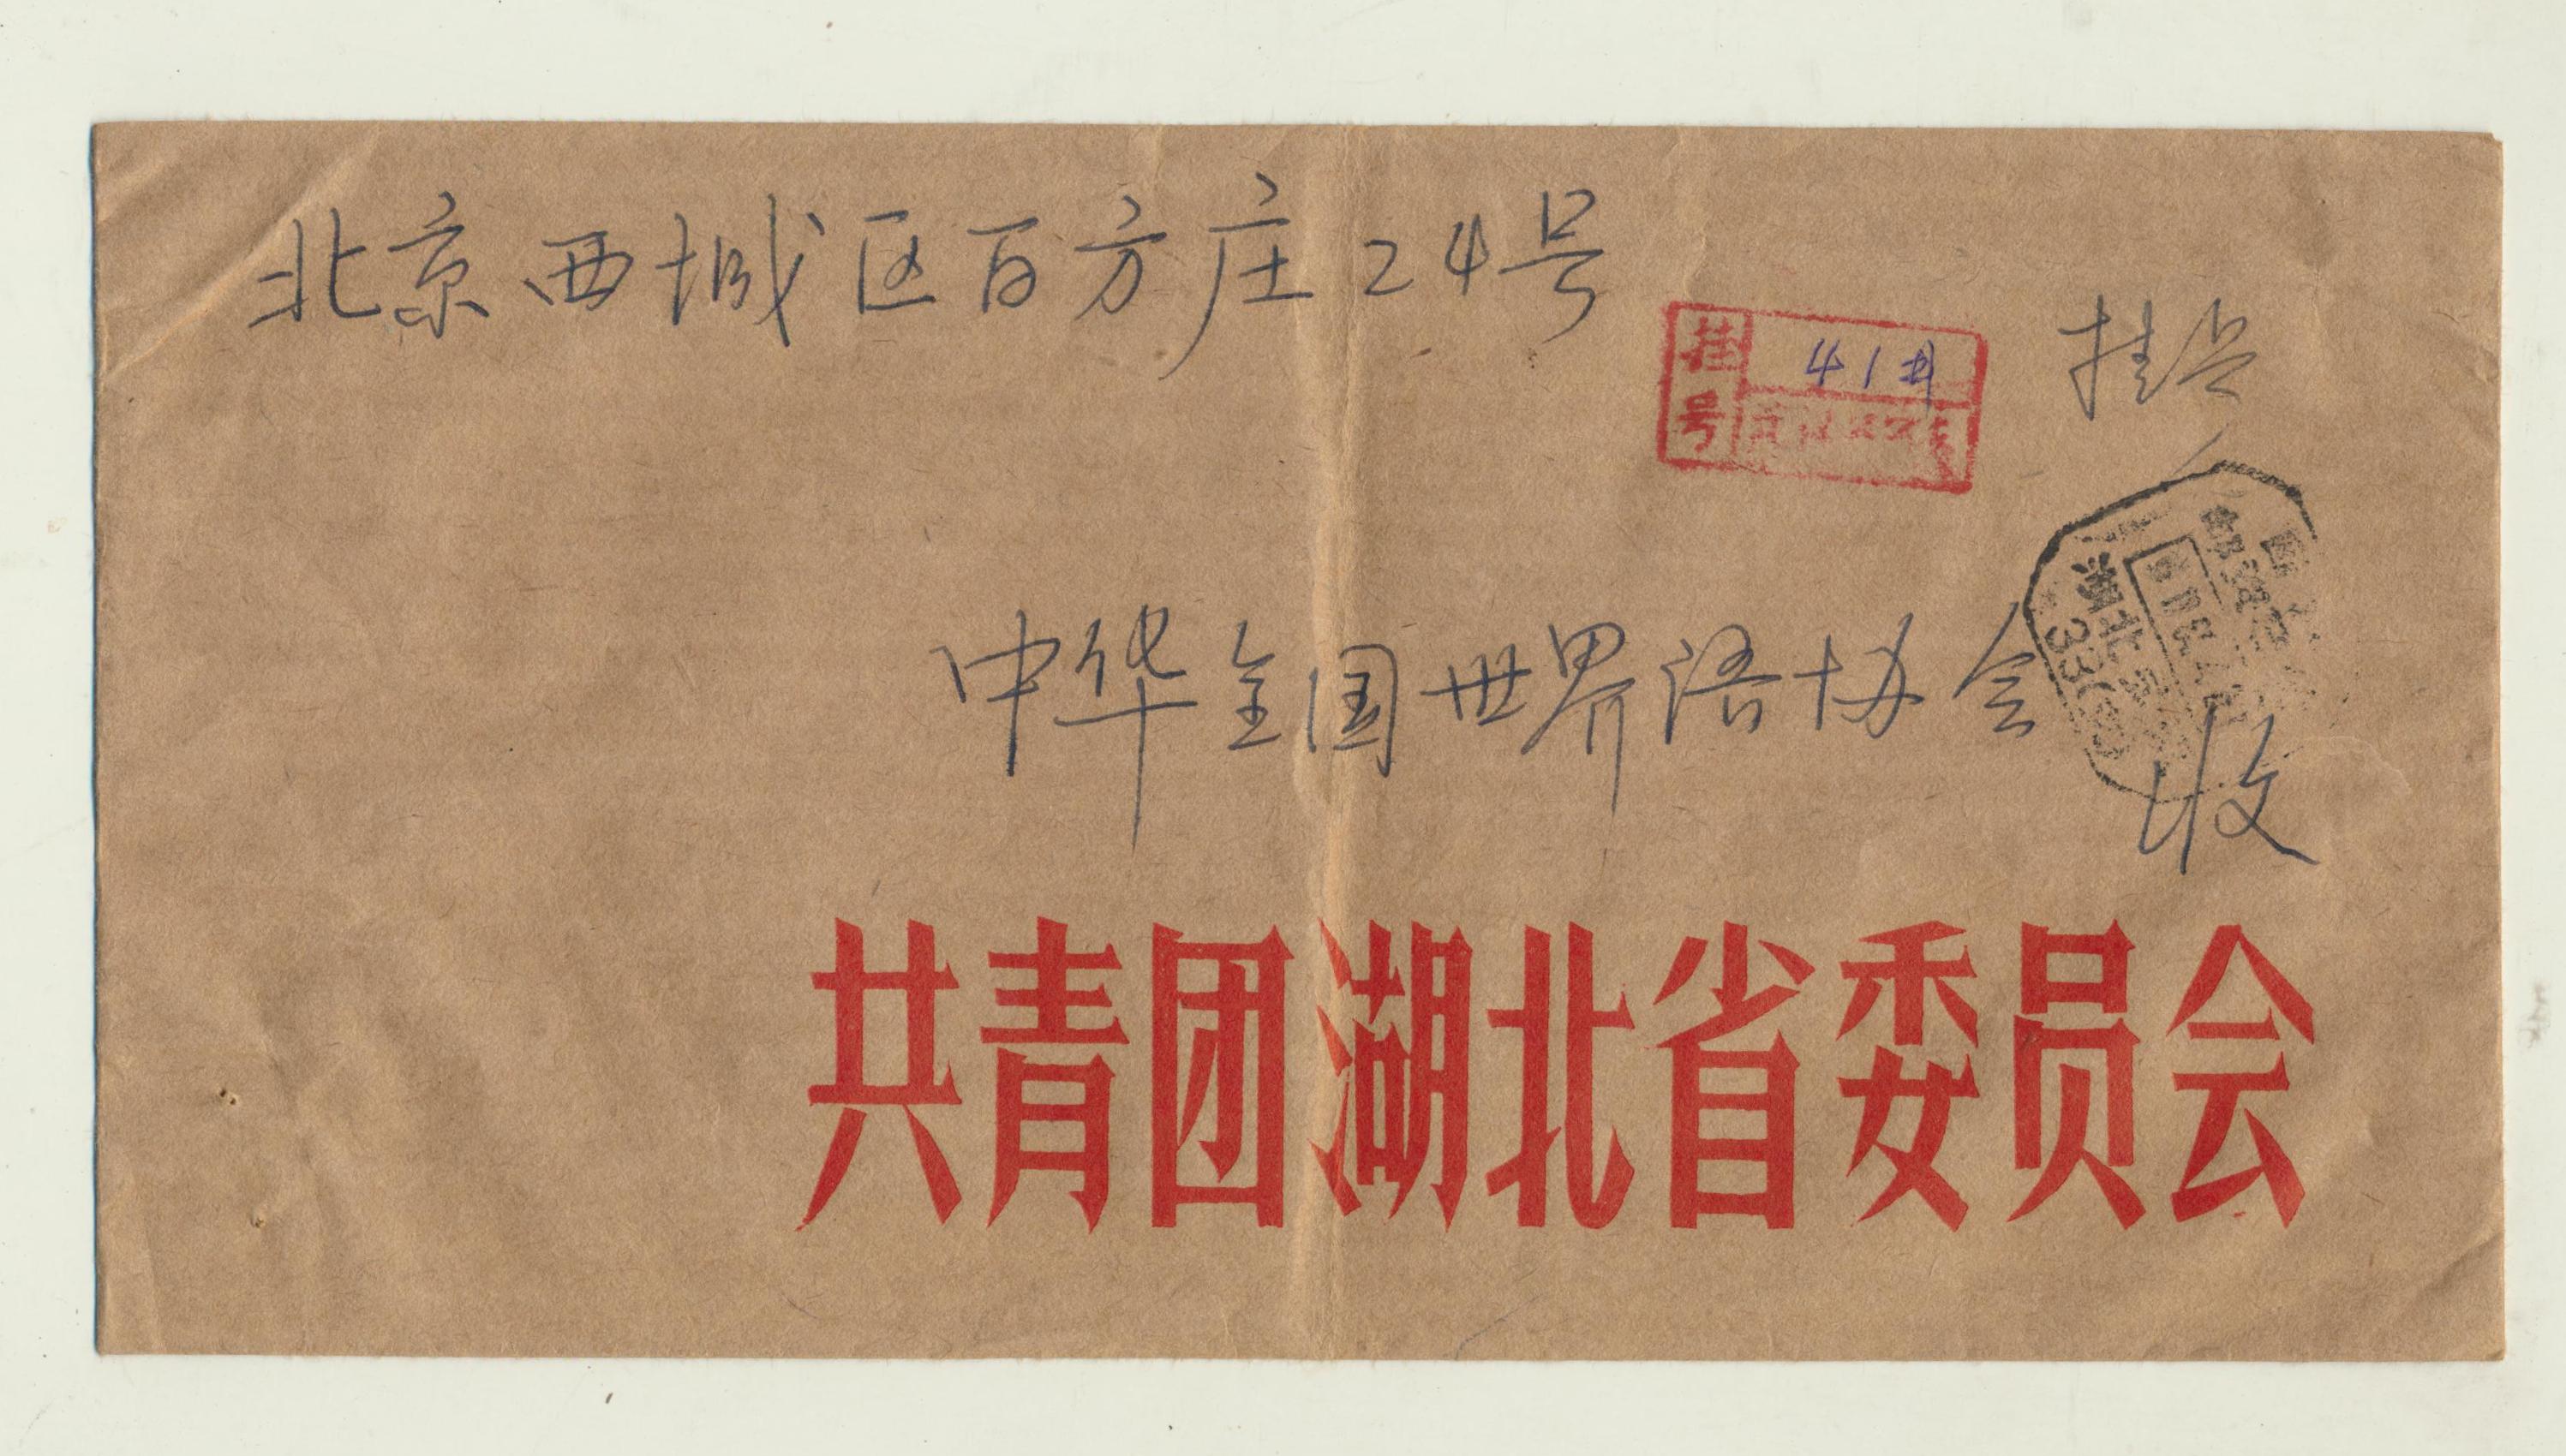 北京西城区百方庄24号
挂号
挂号 41
中华全国世界语协会
收
湖北
330
共青团湖北省委员会